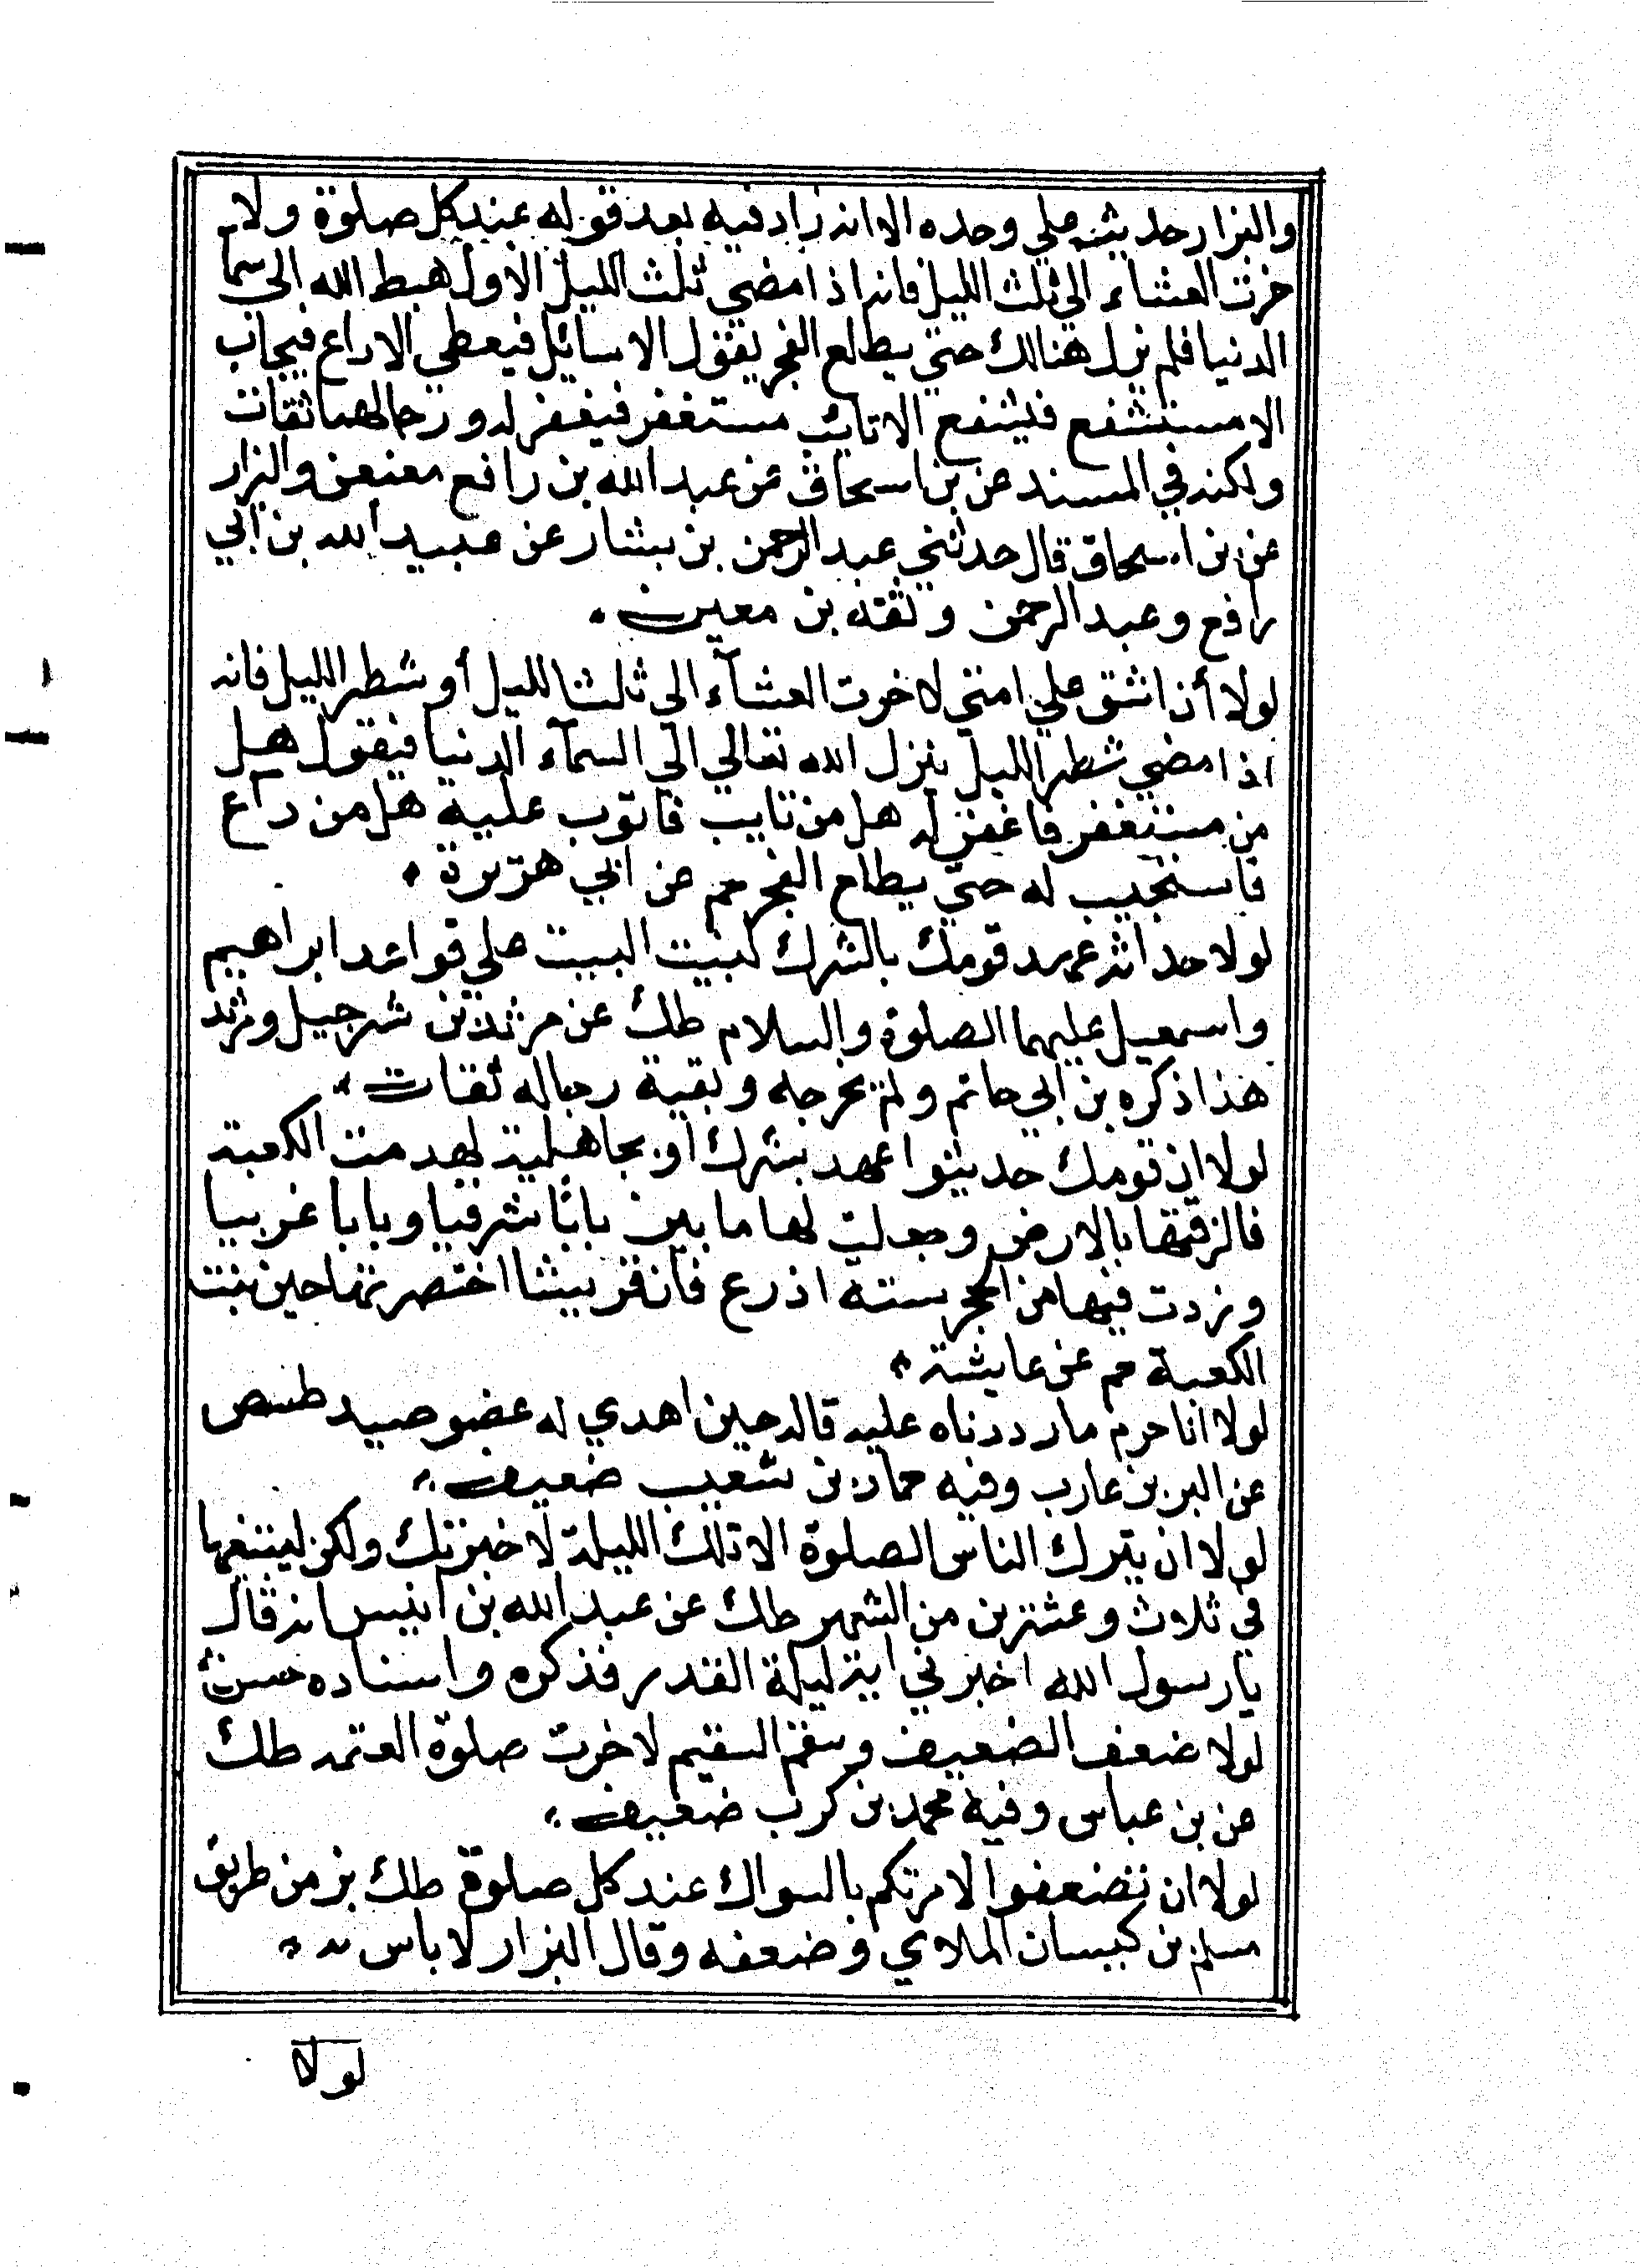 والبزار حديثه علي وحده الا انه زاد فيه بعد قوله عند كل صلوة ولا
خرت العشاء الي ثلث الليل فانه اذا مضي ثلث الليل الاول هبط الله الي سما
الدنيا فلم يزل هنالك حتي يطلع الفجر يقول الا سائل فيعطي الا داع فيجاب
الا مستشفع فيشفع الا تائب مستغفر فيغفر له ورجالهما ثقات
ولكنه في المسند عن بن اسحاق عن عبد الله بن رافع معنعن والبزار
عن بن اسحاق قال حدثني عبد الرحمن بن يشار عن عبيد الله بن ابي
رافع وعبد الرحمن وثقه بن معين
لولا أن اشق علي امتي لاخرت العشآء الي ثلث الليل أو شطر الليل فانه
اذا مضي شطر الليل ينزل الله تعالي الي السمآء الدنيا فيقول هل
من مستغفر فاغفر له هل من تايب فاتوب عليه هل من داع
فاستجيب له حتي يطلع الفجر حم عن ابي هريرة
لولا حداثة عهد قومك بالشرك لبنيت البيت علي قواعد ابراهيم
واسمعيل عليهما الصلوة والسلام طك عن مرثد بن شرحبيل ومرثد
هذا ذكره بن ابي حاتم ولم يخرجه وبقية رجاله ثقات
لولا ان قومك حديثوا عهد بشرك او بجاهلية لهدمت الكعبة
فالزقتها بالارض وجعلت لها ما بين بابا شرقيا وبابا غربيا
وزدت فيها من الحجر ستة اذرع فان قريشا اختصرتها حين بنت
الكعبة حم عن عايشة
لولا انا حرم ما رددناه عليه قاله حين اهدي له عضو صيد طسص
عن البر بن عازب وفيه حماد بن شعيب ضعيف
لولا ان يترك الناس الصلوة الا تلك الليلة لاخبرتك ولكن ليتبعها
في ثلاث وعشرين من الشهر طك عن عبد الله بن انيس انه قال
يا رسول الله اخبرني اية ليلة القدر فذكره واسناده حسن
لولا ضعف الضعيف وسقم السقيم لاخرت صلوة العتمة طك
عن بن عباس وفيه محمد بن كرب ضعيف
لولا ان تضعفوا لامرتكم بالسواك عند كل صلوة طك بز من طريق
مسلم بن كيسان الملاوي وضعفه وقال البزار لا باس به
لولا